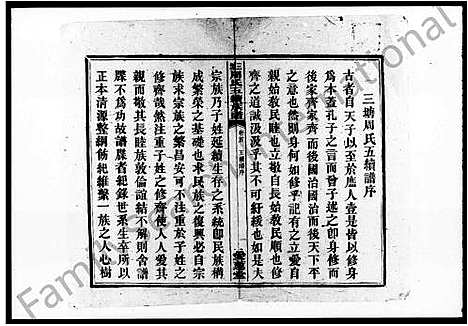 三塘周氏五續譜序
古者自天子以至於庶人壹是皆以修身
爲本蓋孔子之言而曾子述之卽身修而
後家齊家齊而後國治國治而後天下平
之意也然則身何如修乎記有之立愛自
親始敎民睦也立敬自長始敎民順也修
齊之道誠汲汲乎其不可紓緩也如是夫
宗族乃子姓延續生存之系統卽民族構
成繁榮之基礎也求民族之復興必自宗
族求宗族之繁昌安可不注重於子姓之
修齊哉注重子姓之修齊俾人人愛其
親而敬其長睦族敦倫誼結不解則舍譜
牒不爲功故譜牒者紀錄世系生卒所以
正本清源整綱飭紀維繫一族之人心樹
三塘周氏五續族譜
卷首 五續譜序
愛蓮堂
Family Search International